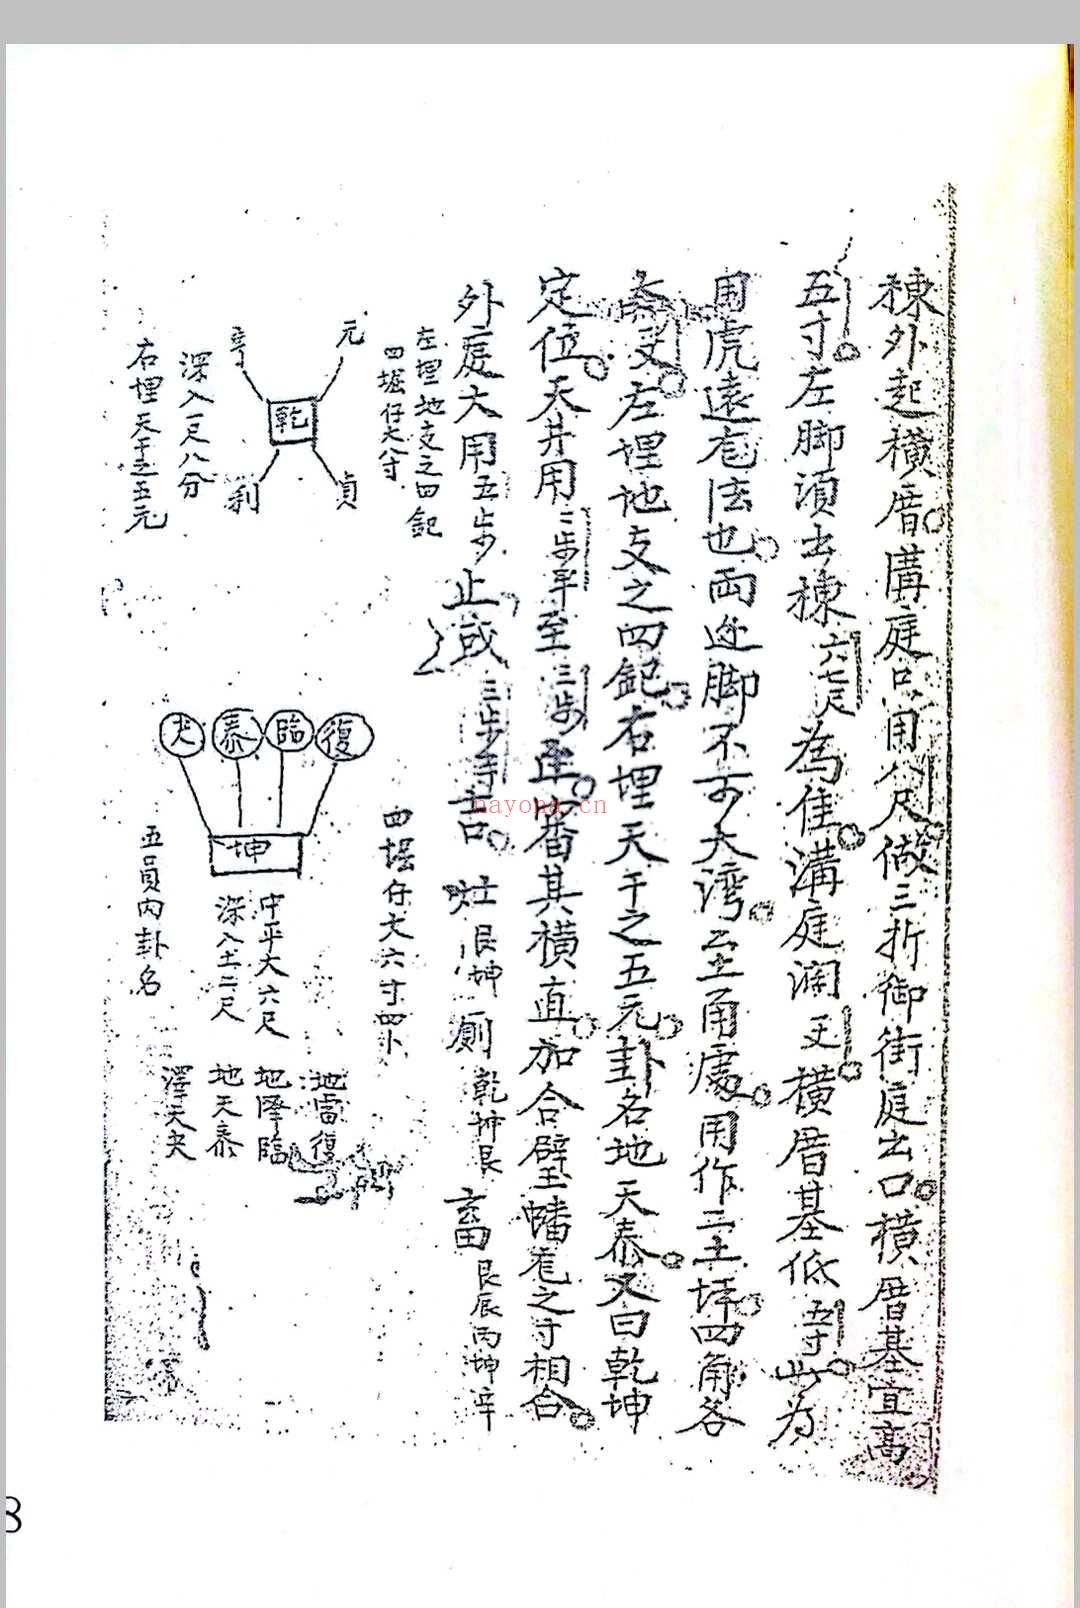 棟外起橫厝溝庭口用八尺做三折御街庭出口橫厝基宜高
五寸左脚須出棟六七尺為佳溝庭濶 丈橫厝基低五寸此為
用虎遠庖法也両邊脚不可大湾至甬處用作二土坪四角各
丈左埋地支之四記右埋天干之五元卦名地天泰又曰乾坤
定位天井用二步半至三步 番其橫直加合壁幡庖之寸相合
外庭大用五步止或三步 吉 灶艮坤 厠乾坤艮 畜艮辰丙坤辛
左埋地支之四記
四堀仔 六寸
元
亨
乾
利
貞
深入一尺八分
右埋天干之五元
復
臨
泰
夬
坤
四堀仔大六寸四卦
中平大六尺
深入土二尺
五員內卦名
地雷復
地澤臨
地天泰
澤天夬
nayona.cn
8